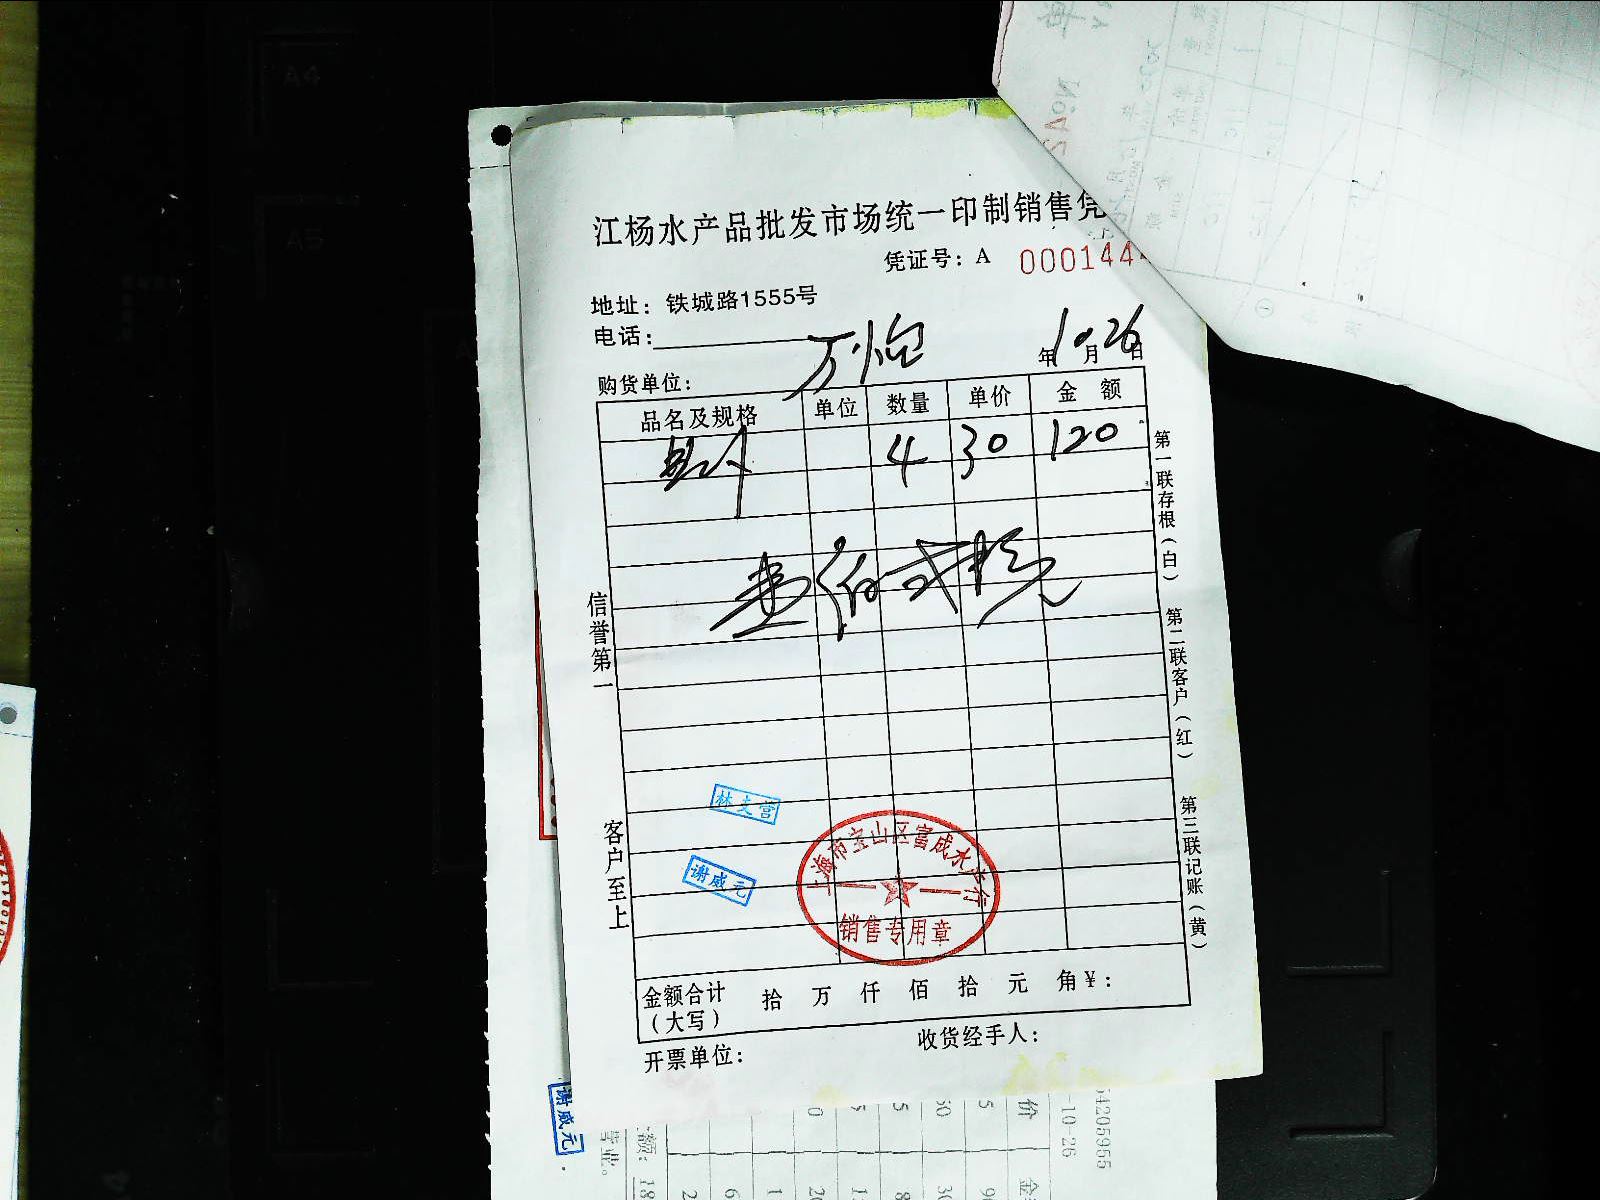 江杨水产品批发市场统一印制销售凭
凭证号：A 0001444
地址：铁城路1555号
电话：
年10月26日
购货单位：
品名及规格 单位 数量 单价 金额
4 30 120
壹佰贰拾元
信誉第一
客户至上
第一联存根（白）
第二联客户（红）
第三联记账（黄）
林文营
谢威元
上海市宝山区富成水产行
销售专用章
金额合计（大写） 拾 万 仟 佰 拾 元 角 ¥：
开票单位： 收货经手人：
谢威元
54205955
-10-26
A4
A5